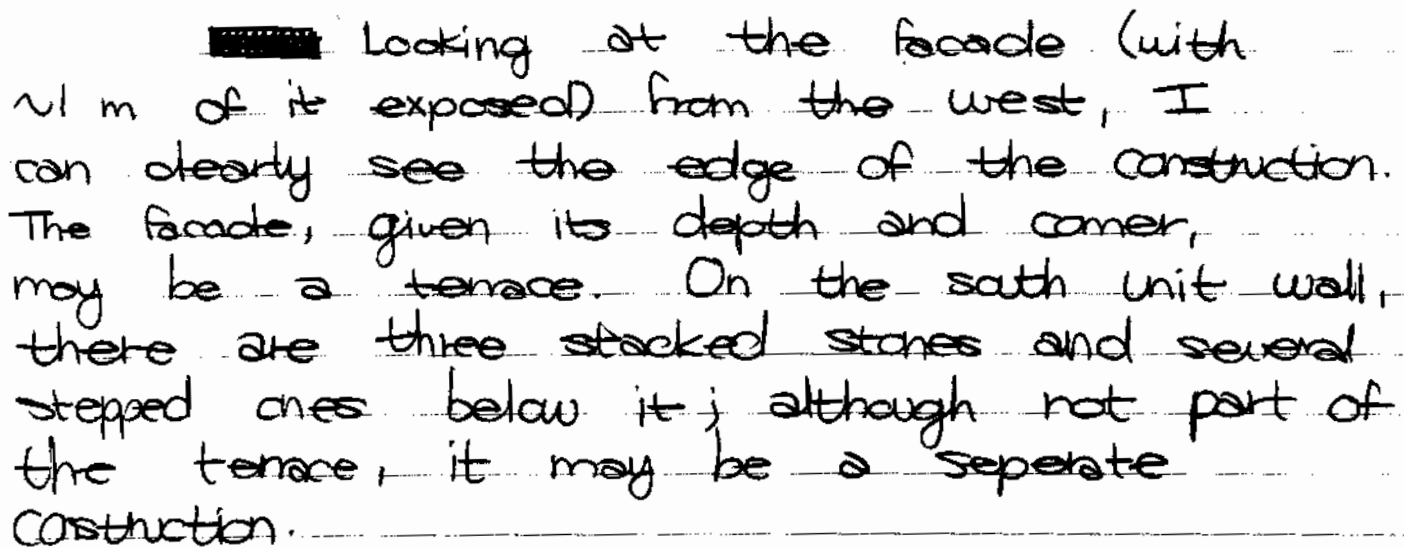 Looking at the facade (with
~1 m of it exposed) from the west, I
can clearly see the edge of the construction.
The facade, given its depth and corner,
may be a terrace. On the south unit wall,
there are three stacked stones and several
stepped ones below it; although not part of
the terrace, it may be a seperate
costruction.